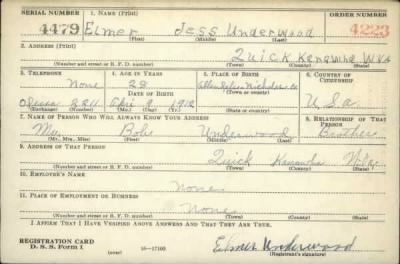 SERIAL NUMBER 1. NAME (Print) ORDER NUMBER
4479 Elmer Jess Underwood 4223
(First) (Middle) (Last)
2. ADDRESS (Print)
Quick Kanawha W.Va
(Number and street or R. F. D. number) (Town) (County) (State)
3. TELEPHONE 4. AGE IN YEARS 5. PLACE OF BIRTH 6. COUNTRY OF CITIZENSHIP
None 28
DATE OF BIRTH (Town or county)
9 1912 U.S.a
(Exchange) (Mo.) (Day) (Yr.) (State or country)
7. NAME OF PERSON WHO WILL ALWAYS KNOW YOUR ADDRESS 8. RELATIONSHIP OF THAT PERSON
Mr. Bob Underwood Brother
(Mr., Mrs., Miss) (First) (Middle) (Last)
9. ADDRESS OF THAT PERSON
Quick Kanawha W.Va.
(Number and street or R. F. D. number) (Town) (County) (State)
10. EMPLOYER'S NAME
None
11. PLACE OF EMPLOYMENT OR BUSINESS
None
(Number and street or R. F. D. number) (Town) (County) (State)
I AFFIRM THAT I HAVE VERIFIED ABOVE ANSWERS AND THAT THEY ARE TRUE.
REGISTRATION CARD
D. S. S. Form 1 (over) 16—17105 Elmer Underwood
(Registrant's signature)